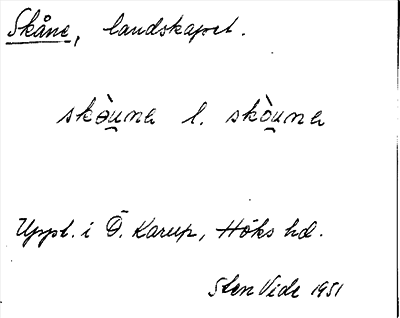 Skåne, landskapet.
skə̀u̯na l. skòu̯na
Uppt. i Ö. Karup, Höks hd.
Sten Vide 1951